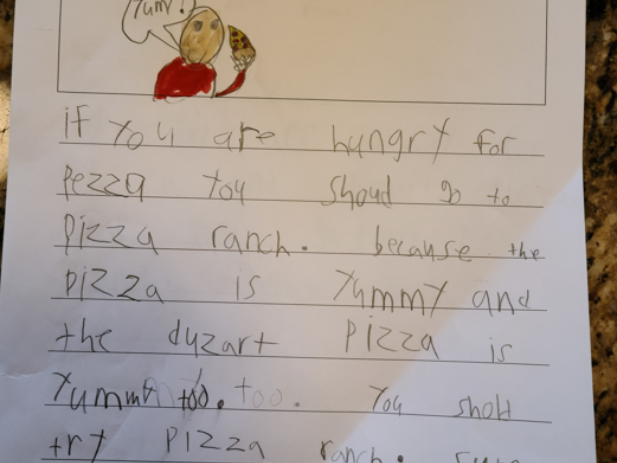 Yum!
if you are hungry for
pezza you shoud go to
pizza ranch. because the
pizza is yummy and
the dyzart pizza is
yummy too. too. you shold
try pizza ranch.